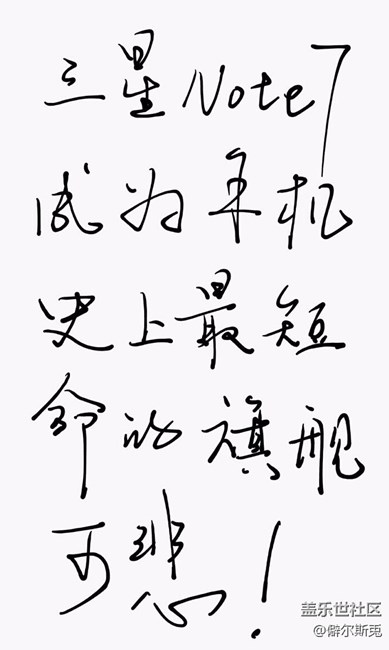 三星Note7
成为手机
史上最短
命的旗舰
可悲!
盖乐世社区
@僻尔斯兎